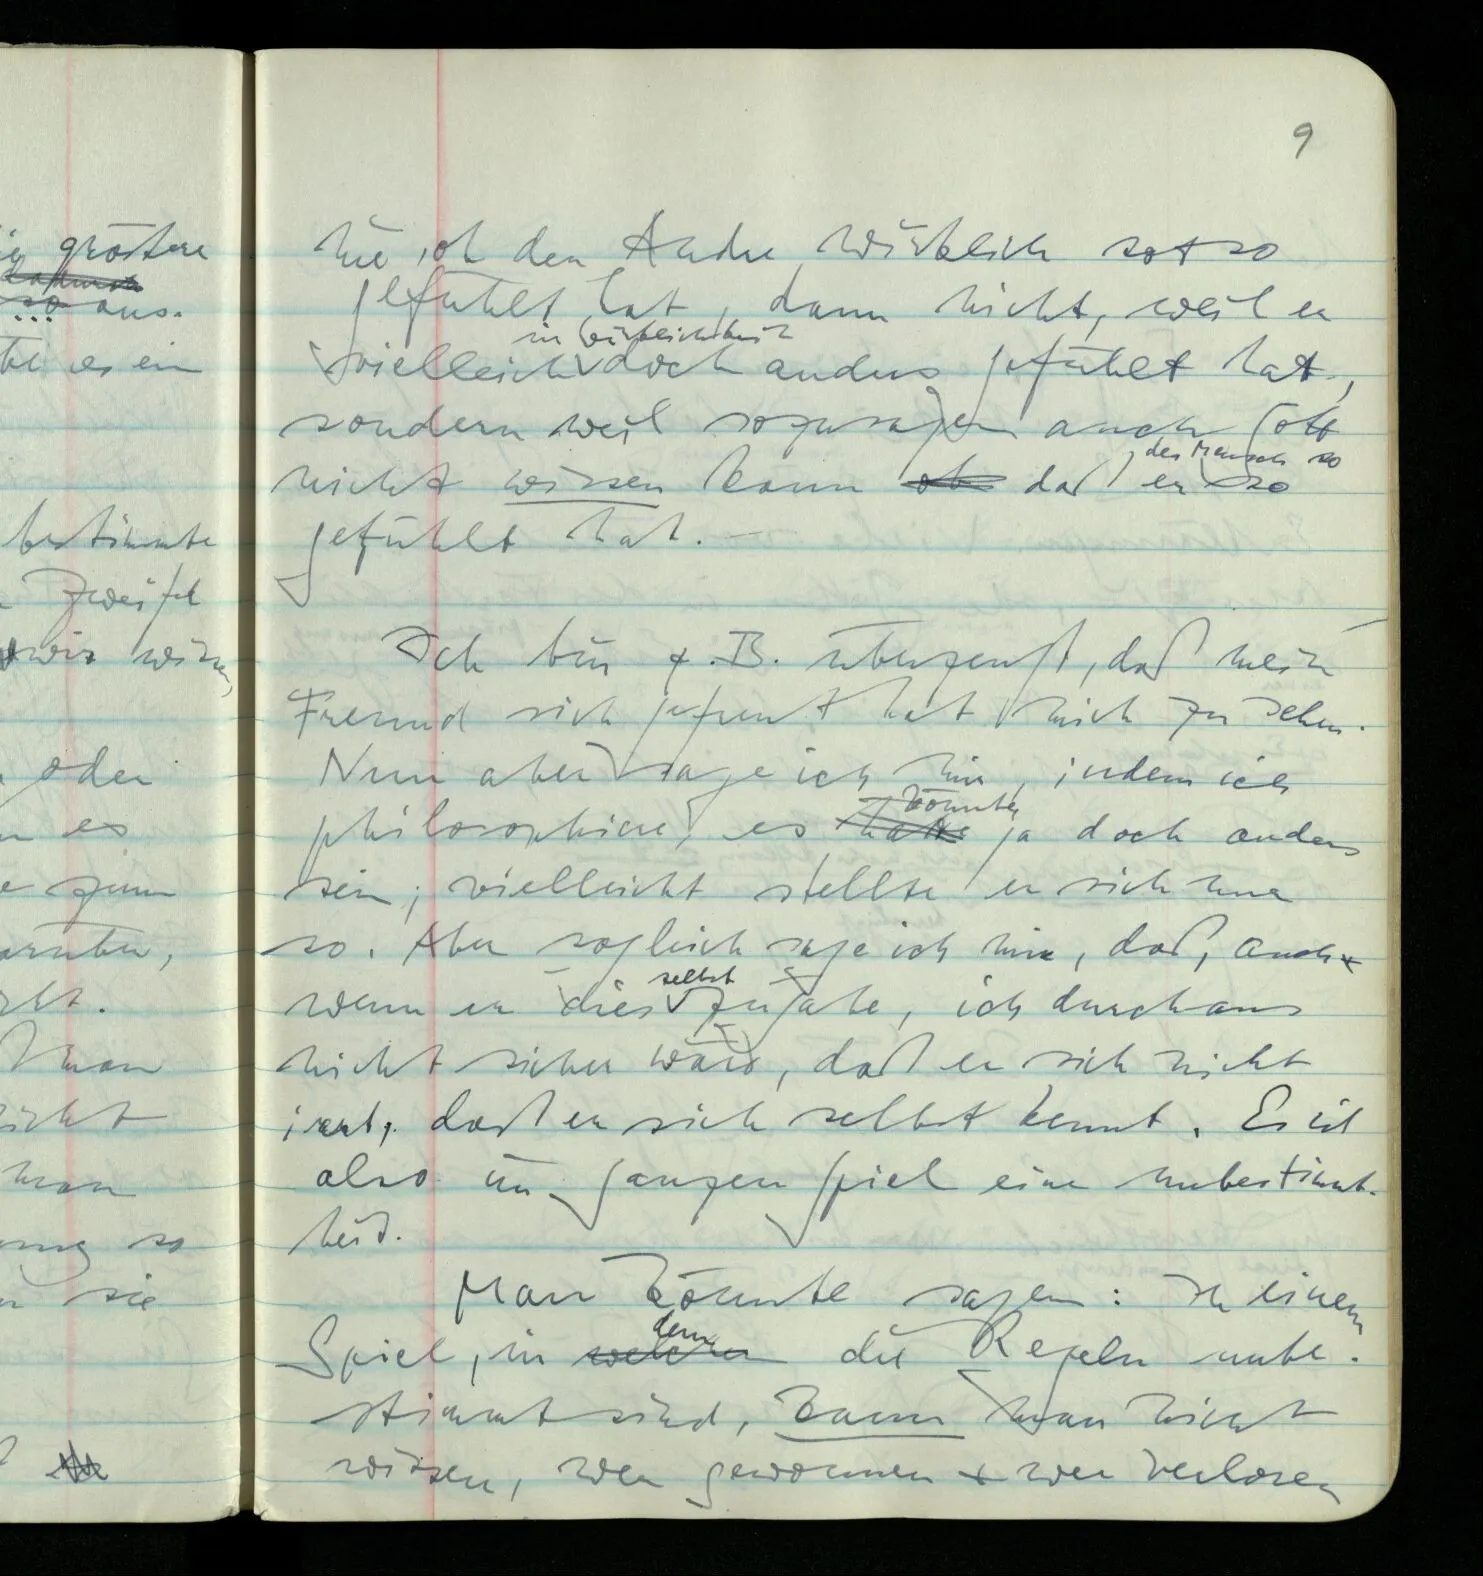 9
nie ob der Andre wirklich so
gefühlt hat, dann nicht, weil er
in Wirklichkeit
vielleicht doch anders gefühlt hat,
sondern weil sozusagen auch Gott
der Mensch so
nicht wissen kann ob daß er so
gefühlt hat. —
Ich bin z.B. überzeugt, daß mein
Freund sich gefreut hat mich zu sehen.
Nun aber sage ich mir, indem ich
könnte
philosophiere, es hätte ja doch anders
sein; vielleicht stellte er sich nur
so. Aber sogleich sage ich mir, daß, auch
selbst
wenn er dies zugäbe, ich durchaus
nicht sicher wäre, daß er sich nicht
irrt, daß er sich selbst kennt. Es ist
also im ganzen Spiel eine Unbestimmt-
heit.
Man könnte sagen: In einem
dem
Spiel, in welchem die Regeln unbe-
stimmt sind, kann man nicht
wissen, wer gewonnen & wer verloren
größere
so aus.
es ein
bestimmte
Zweifel
wir wissen,
oder
es
zum
man
nicht
man
so
sie